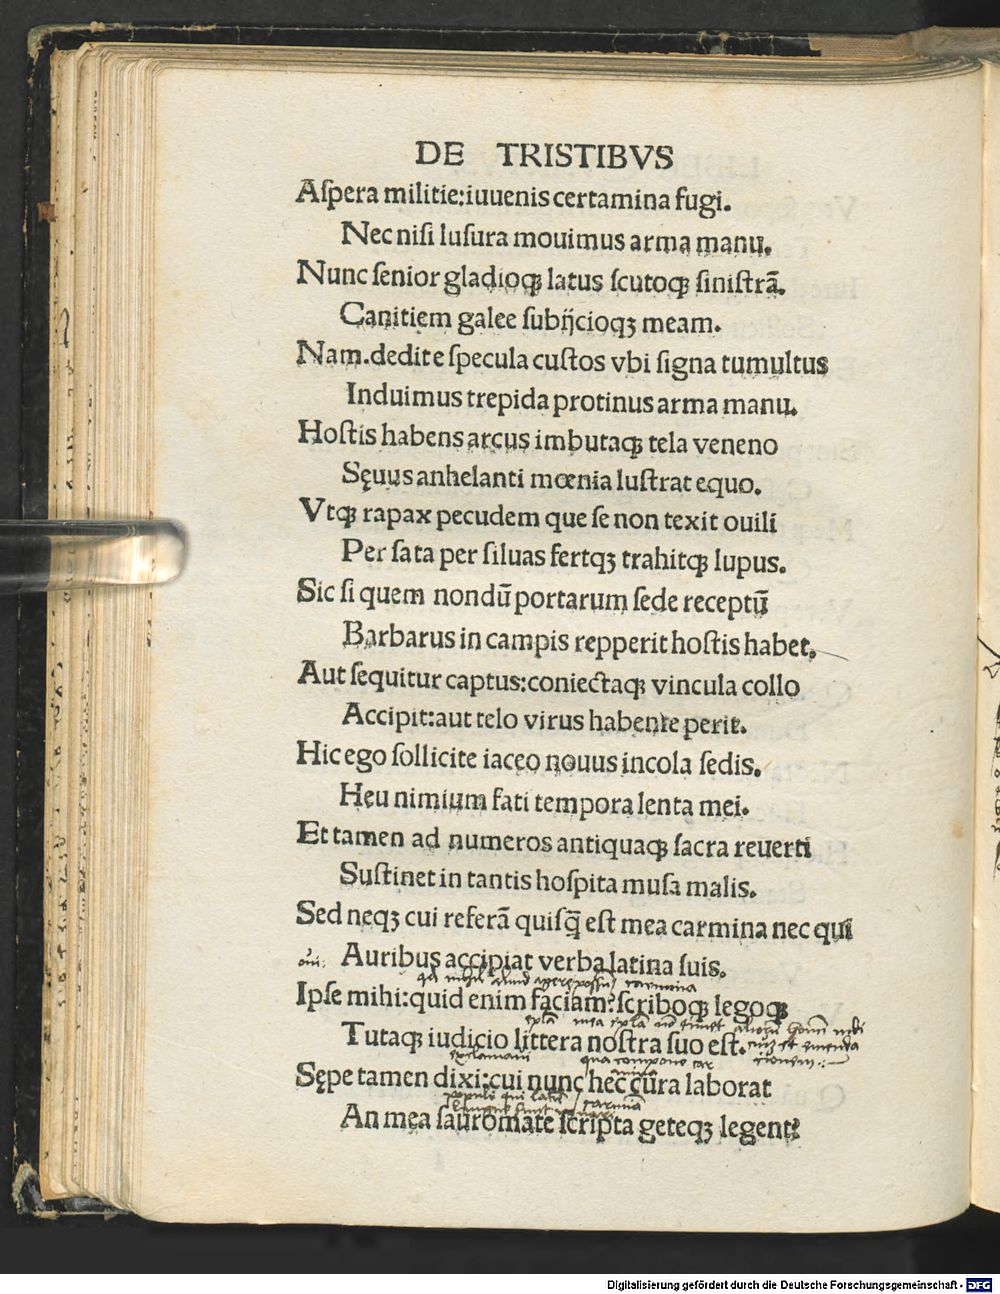 DE TRISTIBVS
Aſpera militie:iuuenis certamina fugi.
Nec niſi luſura mouimus arma manu.
Nunc ſenior gladioqꝫ latus ſcutoqꝫ ſiniſtrā.
Canitiem galee ſubijcioqꝫ meam.
Nam.dedit e ſpecula cuſtos vbi ſigna tumultus
Induimus trepida protinus arma manu.
Hoſtis habens arcus imbutaqꝫ tela veneno
Sęuus anhelanti mœnia luſtrat equo.
Vtqꝫ rapax pecudem que ſe non texit ouili
Per ſata per ſiluas fertqꝫ trahitqꝫ lupus.
Sic ſi quem nondū portarum ſede receptū
Barbarus in campis repperit hoſtis habet.
Aut ſequitur captus:coniectaqꝫ vincula collo
Accipit:aut telo virus habente perit.
Hic ego ſollicite iaceo nouus incola ſedis.
Heu nimium fati tempora lenta mei.
Et tamen ad numeros antiquaqꝫ ſacra reuerti
Suſtinet in tantis hoſpita muſa malis.
Sed neqꝫ cui referā quiſq̄ eſt mea carmina nec qui
Auribus accipiat verba latina ſuis.
carmina
Ipſe mihi:quid enim faciam?ſcriboqꝫ legoqꝫ
Tutaqꝫ iudicio littera noſtra ſuo eſt.
Sępe tamen dixi:cui nunc hec cura laborat
An mea ſauromate ſcripta geteqꝫ legent?
Digitalisierung gefördert durch die Deutsche Forschungsgemeinschaft - DFG